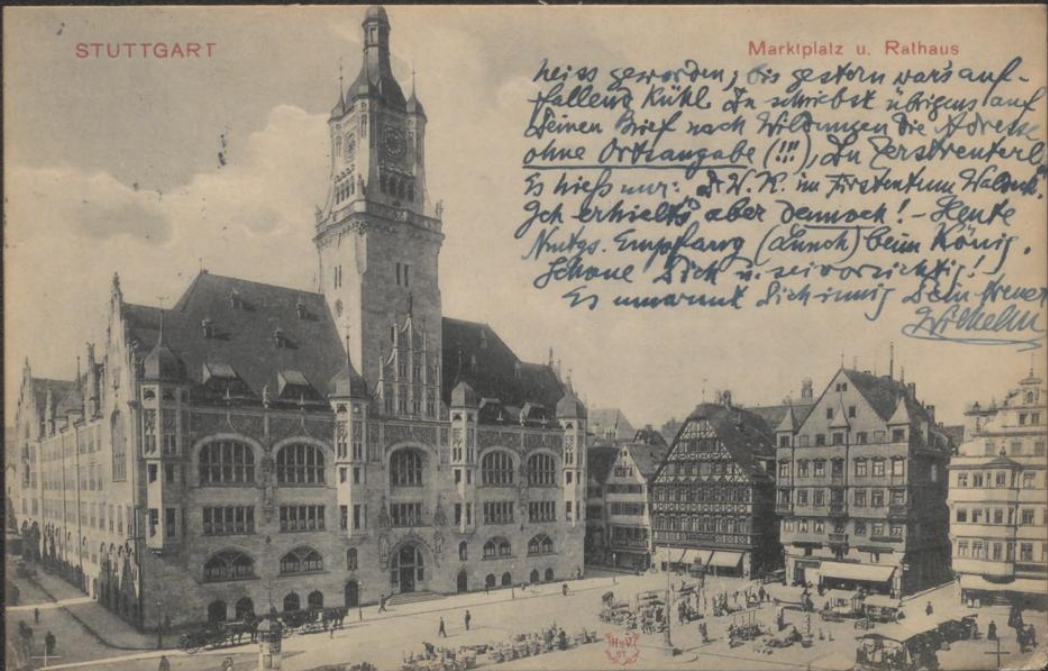 STUTTGART
Marktplatz u. Rathaus
heiss geworden, bis gestern war's auf-
fallend kühl. Du schriebst übrigens auf
Deinen Brief nach Wildungen die Adresse
ohne Ortsangabe (!!!), Du Zerstreuterl
Es hieß nur: Dr W. K. im Fürstentum Waldeck.
Ich erhielt's aber dennoch! - Heute
Empfang (Lunch) beim König.
Schone Dich u. sei vorsichtig!
Es umarmt Dich innig Dein treuer
Wilhelm